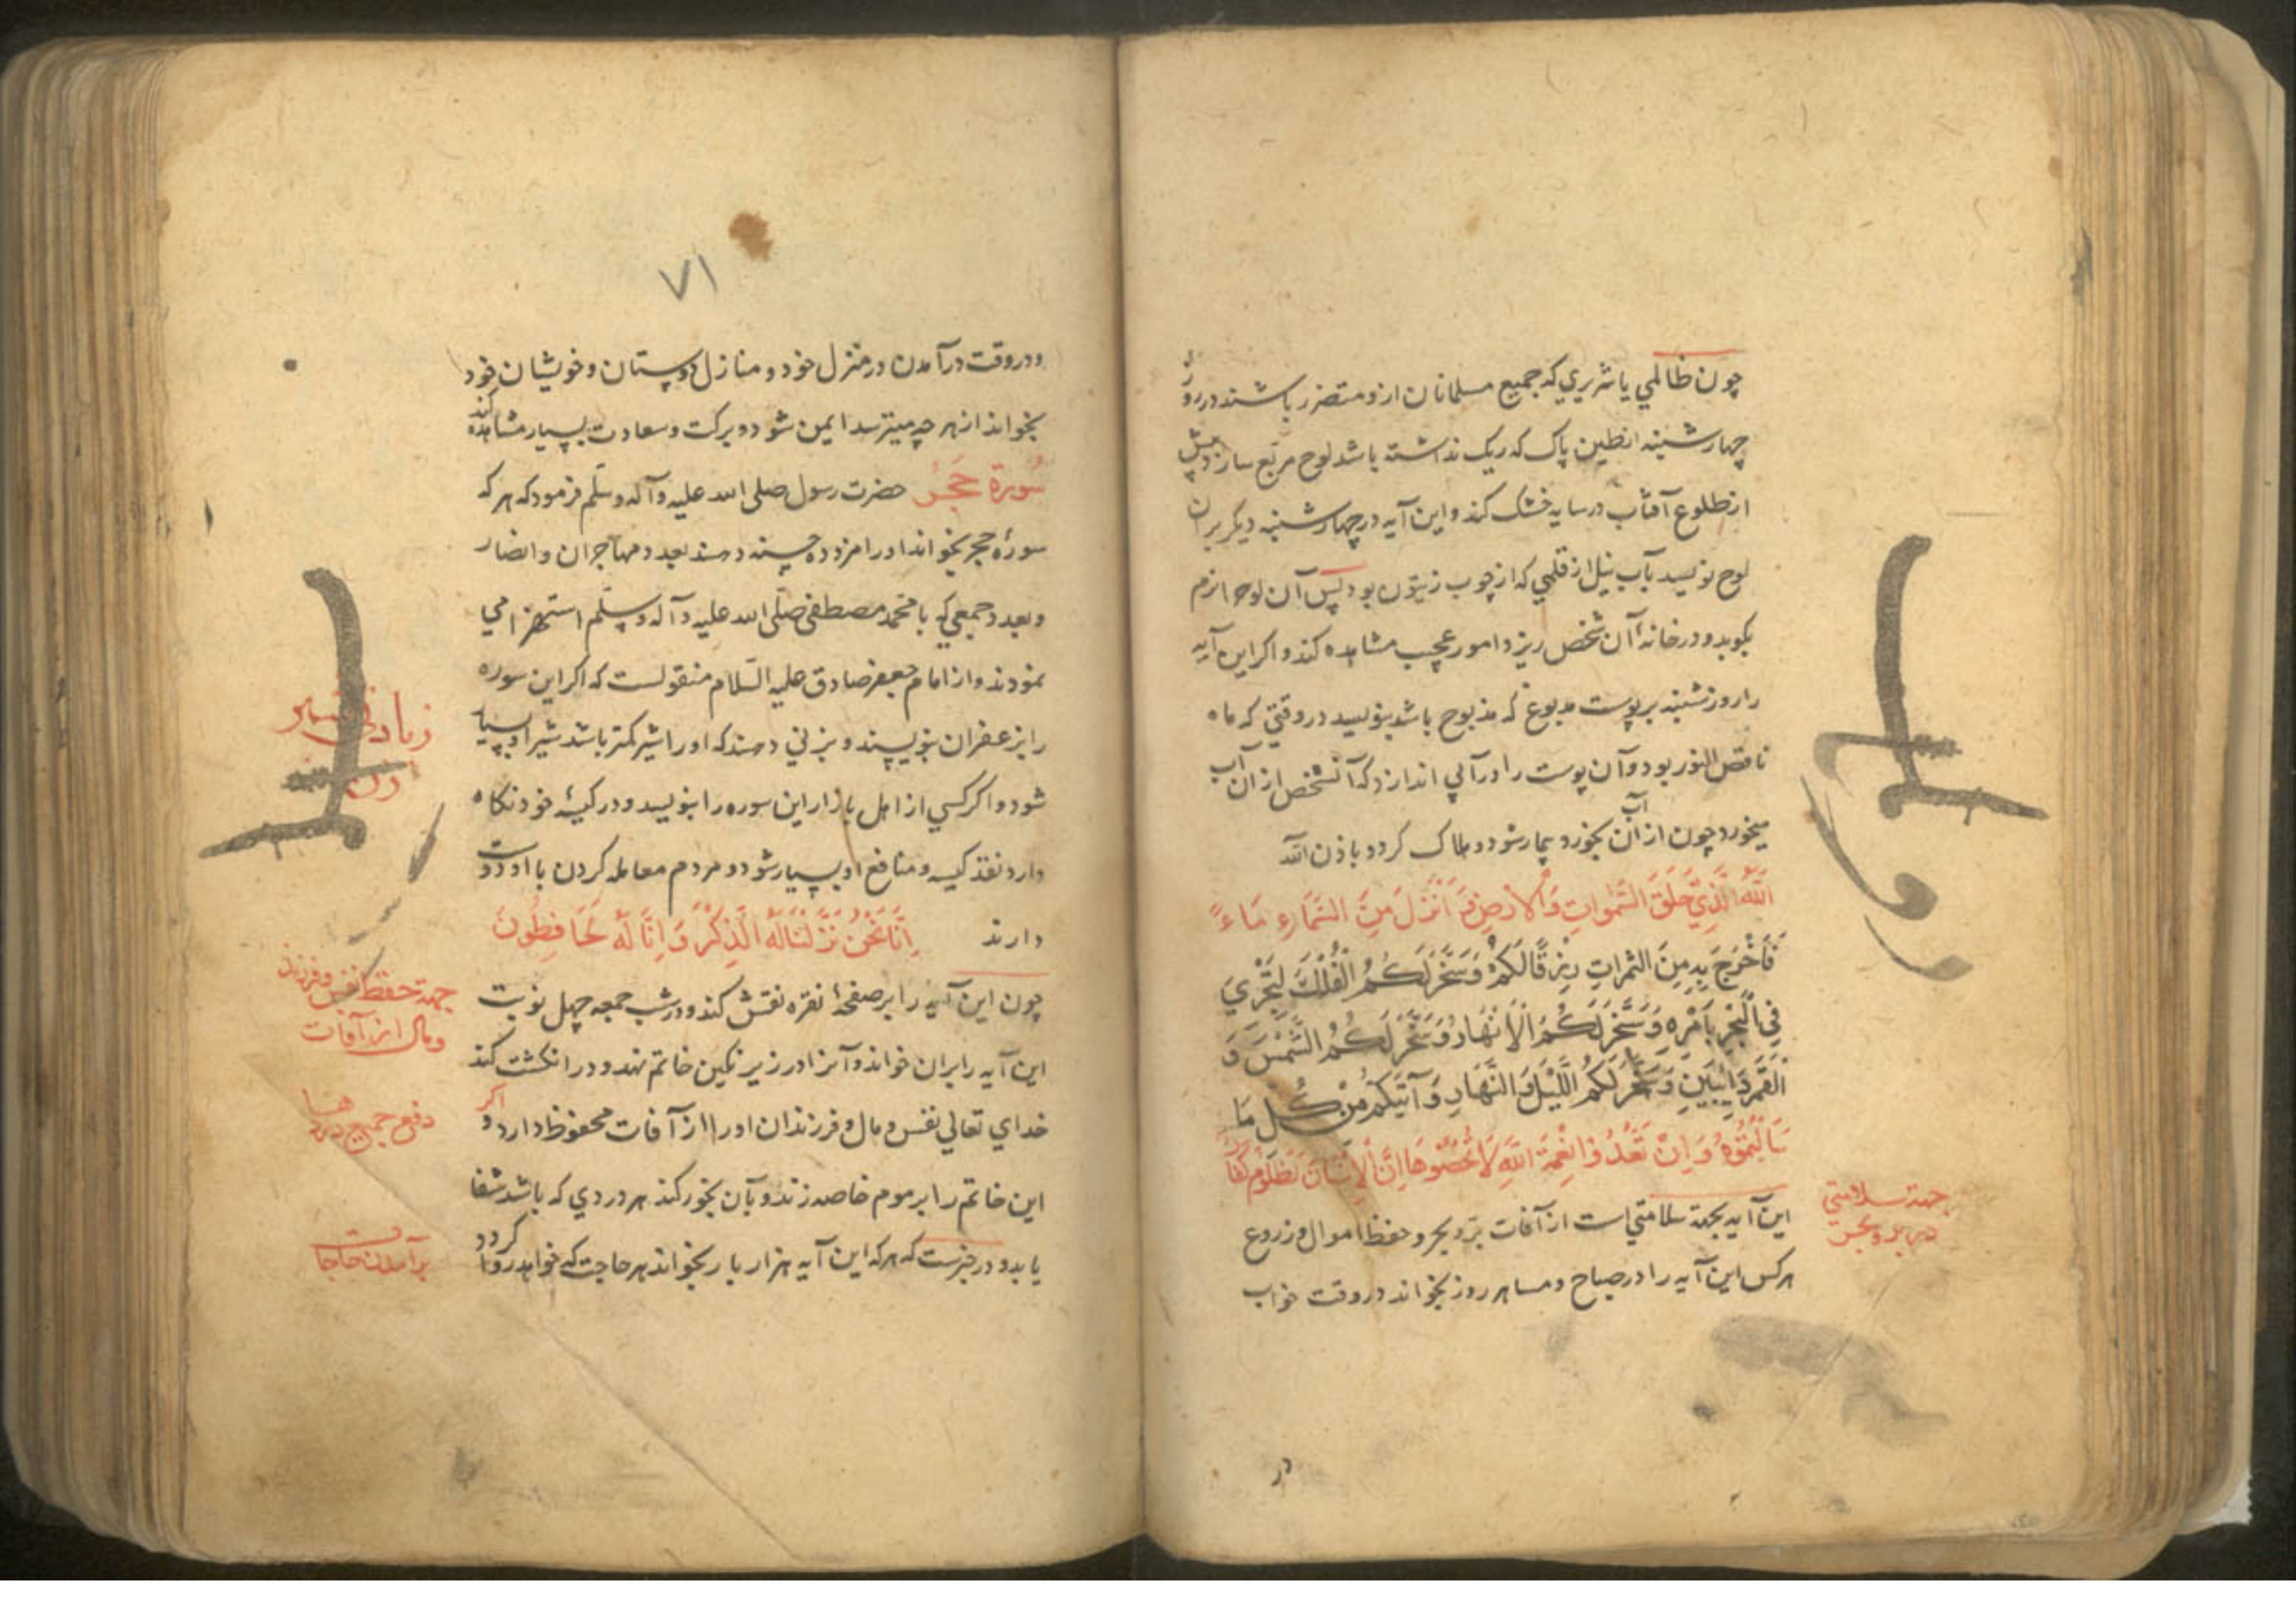 چون ظالمي يا شريري كه جميع مسلمانان ازو متضرر باشند در روز
چهارشنبه از طين پاك كه ريك نداشته باشد لوح مربع سازد پيش
از طلوع آفتاب در سايه خشك كند و اين آيه در چهارشنبه ديكر بران
لوح نويسد بآب نيل از قلمي كه از چوب زيتون بود پس آن لوح را نرم
بكوبد و در خانهٔ آن شخص ريزد امور عجيب مشاهده كند و اكر اين آيه
را روز شنبه بر پوست مدبوغ كه مذبوح باشد بنويسد در وقتي كه ماه
ناقص النور بود و آن پوست را در آبي اندازد كه آنشخص از ان آب
ميخورد چون از ان آب بخورد بيمار شود و هلاك كردد باذن الله
اَللهُ الَّذِي خَلَقَ السَّمٰواتِ وَالْاَرْضِ وَ اَنْزَلَ مِنَ السَّمَاءِ مَاءً
فَاَخْرَجَ بِهِ مِنَ الثمراتِ رِزْقًا لَكُمْ وَسَخَّرَ لَكُمُ الْفُلْكَ لِتَجْرِيَ
فِي الْبَحْرِ بِاَمْرِهِ وَ سَخَّرَ لَكُمُ الْاَنْهَارَ وَسَخَّرَ لَكُمُ الشَّمْسَ وَ
الْقَمَرَ دَائِبَيْنِ وَ سَخَّرَ لَكُمُ اللَّيْلَ وَ النَّهَارِ وَ آتَيكُمْ مِنْ كُلِ مَا
سَاَلْتُمُوْهُ وَ اِنْ تَعُدُّوْا نِعْمَةَ اللهِ لَا تُحْصُوْهَا اِنَّ الْاِنْسَانَ لَظَلُوْمٌ كَفَّارٌ
اين آيه بجهة سلامتي است از آفات بر و بحر و حفظ اموال و زروع
هر كس اين آيه را در صباح و مسا هر روز بخواند در وقت خواب
جهة سلامتي
در بر و بحر
در
٧١
و در وقت در آمدن در منزل خود و منازل دوستان و خويشان خود
بخواند از هر چه ميترسد ايمن شود و بركت و سعادت بسيار مشاهده كند
سُورة حجر حضرت رسول صلى الله عليه و آله و سلّم فرمود كه هر كه
سورهٔ حجر بخواند او را مزد ده حسنه دهند بعدد مهاجران و انصار
و بعدد جمعي كه با محمد مصطفى صلّى الله عليه و آله و سلّم استهزا مي
نمودند و از امام جعفر صادق عليه السّلام منقولست كه اكر اين سوره
را بزعفران بنويسند و بزني دهند كه او را شير كمتر باشد شير او بسيار
شود و اكر كسي از اهل بازار اين سوره را بنويسد و در كيسهٔ خود نكاه
دارد نقد كيسه و منافع او بسيار شود و مردم معامله كردن با او دوست
دارند اِنَّا نَحْنُ نَزَّلْنَا لَهُ الَّذِكْرَ وَ اِنَّا لَهُ لَحَافِظُونَ
چون اين آيه را بر صفحهٔ نقره نقش كند و در شب جمعه چهل نوبت
اين آيه را بران خواند و آنرا در زير نكين خاتم نهد و در انكشت كند
خداي تعالي نفس و مال و فرزندان او را از آفات محفوظ دارد و اكر
اين خاتم را بر موم خاصه زند و بآن بخور كند هر دردي كه باشد شفا
يابد و در خبرست كه هر كه اين آيه هزار بار بخواند هر حاجت كه خواهد روا كردد
زيادتي شير
زن
جهة حفظ نفس و فرزند
و مال از آفات
دفع جميع دردها
برآمدن حاجات